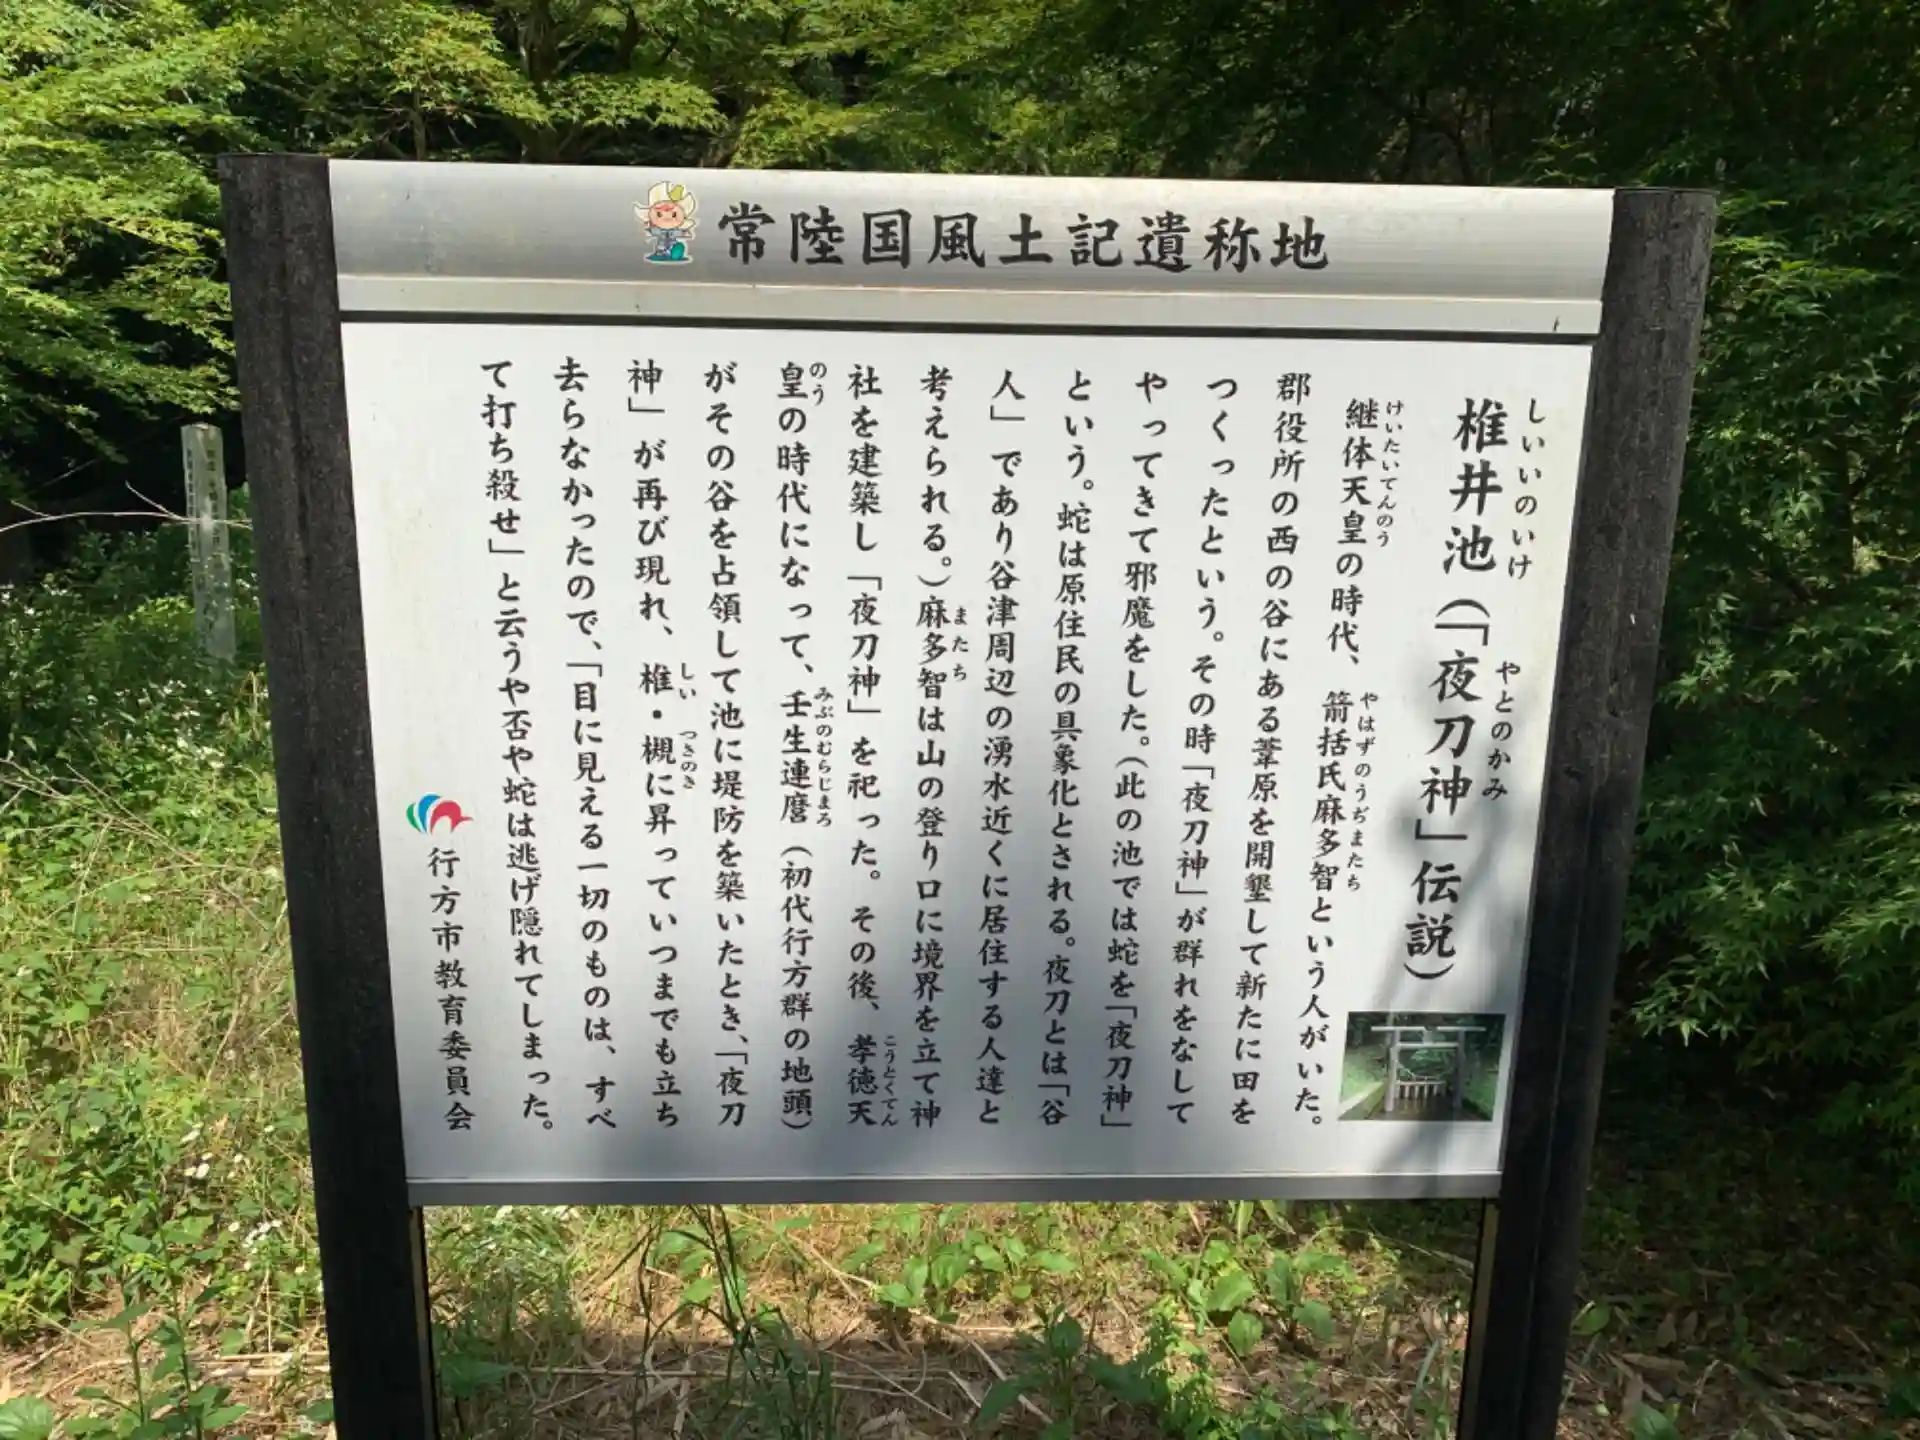 常陸国風土記遺称地
椎井池（「夜刀神」伝説）
しいいのいけ
やとのかみ
継体天皇の時代、箭括氏麻多智という人がいた。
けいたいてんのう
やはずのうぢまたち
郡役所の西の谷にある葦原を開墾して新たに田を
つくったという。その時「夜刀神」が群れをなして
やってきて邪魔をした。（此の池では蛇を「夜刀神」
という。蛇は原住民の具象化とされる。夜刀とは「谷
人」であり谷津周辺の湧水近くに居住する人達と
考えられる。）麻多智は山の登り口に境界を立て神
またち
社を建築し「夜刀神」を祀った。その後、孝徳天
こうとくてん
皇の時代になって、壬生連麿（初代行方群の地頭）
のう
みぶのむらじまろ
がその谷を占領して池に堤防を築いたとき、「夜刀
神」が再び現れ、椎・槻に昇っていつまでも立ち
しい
つきのき
去らなかったので、「目に見える一切のものは、すべ
て打ち殺せ」と云うや否や蛇は逃げ隠れてしまった。
行方市教育委員会